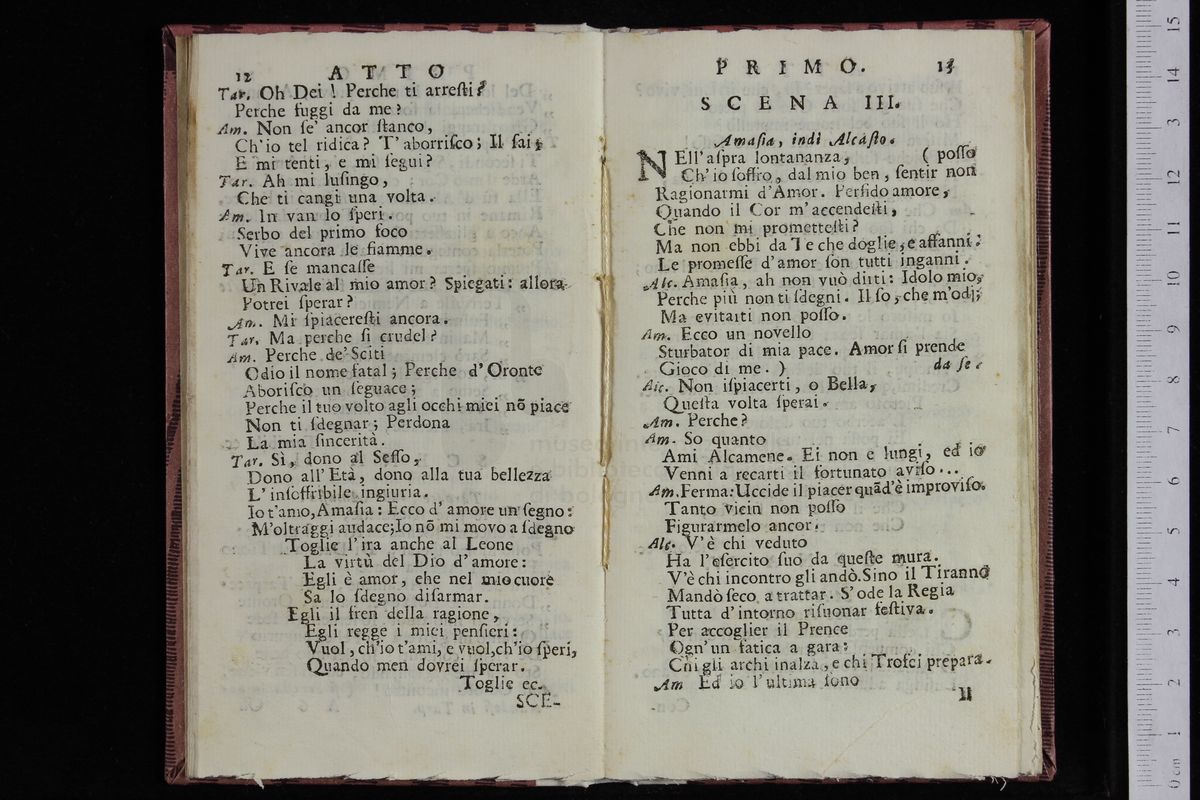 12 ATTO
Tar. Oh Dei! Perche ti arreſti?
Perche fuggi da me?
Am. Non ſe' ancor ſtanco,
Ch'io tel ridica? T'aborriſco; Il ſai;
E mi tenti, e mi ſegui?
Tar. Ah mi luſingo,
Che ti cangi una volta.
Am. In van lo ſperi.
Serbo del primo foco
Vive ancora le fiamme.
Tar. E ſe mancaſſe
Un Rivale al mio amor? Spiegati: allora
Potrei ſperar?
Am. Mi ſpiacereſti ancora.
Tar. Ma perche ſi crudel?
Am. Perche de' Sciti
Odio il nome fatal; Perche d'Oronte
Aboriſco un ſeguace;
Perche il tuo volto agli occhi miei nõ piace
Non ti ſdegnar; Perdona
La mia ſincerità.
Tar. Sì, dono al Seſſo,
Dono all'Età, dono alla tua bellezza
L'inſoffribile ingiuria.
Io t'amo, Amaſia: Ecco d'amore un ſegno:
M'oltraggi audace; Io nõ mi movo a ſdegno
Toglie l'ira anche al Leone
La virtù del Dio d'amore:
Egli è amor, che nel mio cuore
Sa lo ſdegno diſarmar.
Egli il fren della ragione,
Egli regge i miei penſieri:
Vuol, ch'io t'ami, e vuol, ch'io ſperi,
Quando men dovrei ſperar.
Toglie ec.
SCE-
PRIMO. 13
SCENA III.
Amaſia, indi Alcaſto.
NEll'aſpra lontananza, ( poſſo
Ch'io ſoffro, dal mio ben, ſentir non
Ragionarmi d'Amor. Perfido amore,
Quando il Cor m'accendeſti,
Che non mi prometteſti?
Ma non ebbi da Te che doglie, e affanni:
Le promeſſe d'amor ſon tutti inganni.
Alc. Amaſia, ah non vuò dirti: Idolo mio,
Perche più non ti ſdegni. Il ſo, che m'odj;
Ma evitarti non poſſo.
Am. Ecco un novello
Sturbator di mia pace. Amor ſi prende
Gioco di me. ) da ſe.
Alc. Non iſpiacerti, o Bella,
Queſta volta ſperai.
Am. Perche?
Am. So quanto
Ami Alcamene. Ei non e lungi, ed io
Venni a recarti il fortunato aviſo...
Am. Ferma: Uccide il piacer quãd'è improviſo.
Tanto vicin non poſſo
Figurarmelo ancor.
Alc. V'è chi veduto
Ha l'eſercito ſuo da queſte mura.
V'è chi incontro gli andò. Sino il Tiranno
Mandò ſeco a trattar. S'ode la Regia
Tutta d'intorno riſuonar feſtiva.
Per accoglier il Prence
Ogn'un fatica a gara:
Chi gli archi inalza, e chi Trofei prepara.
Am Ed io l'ultima ſono
Il